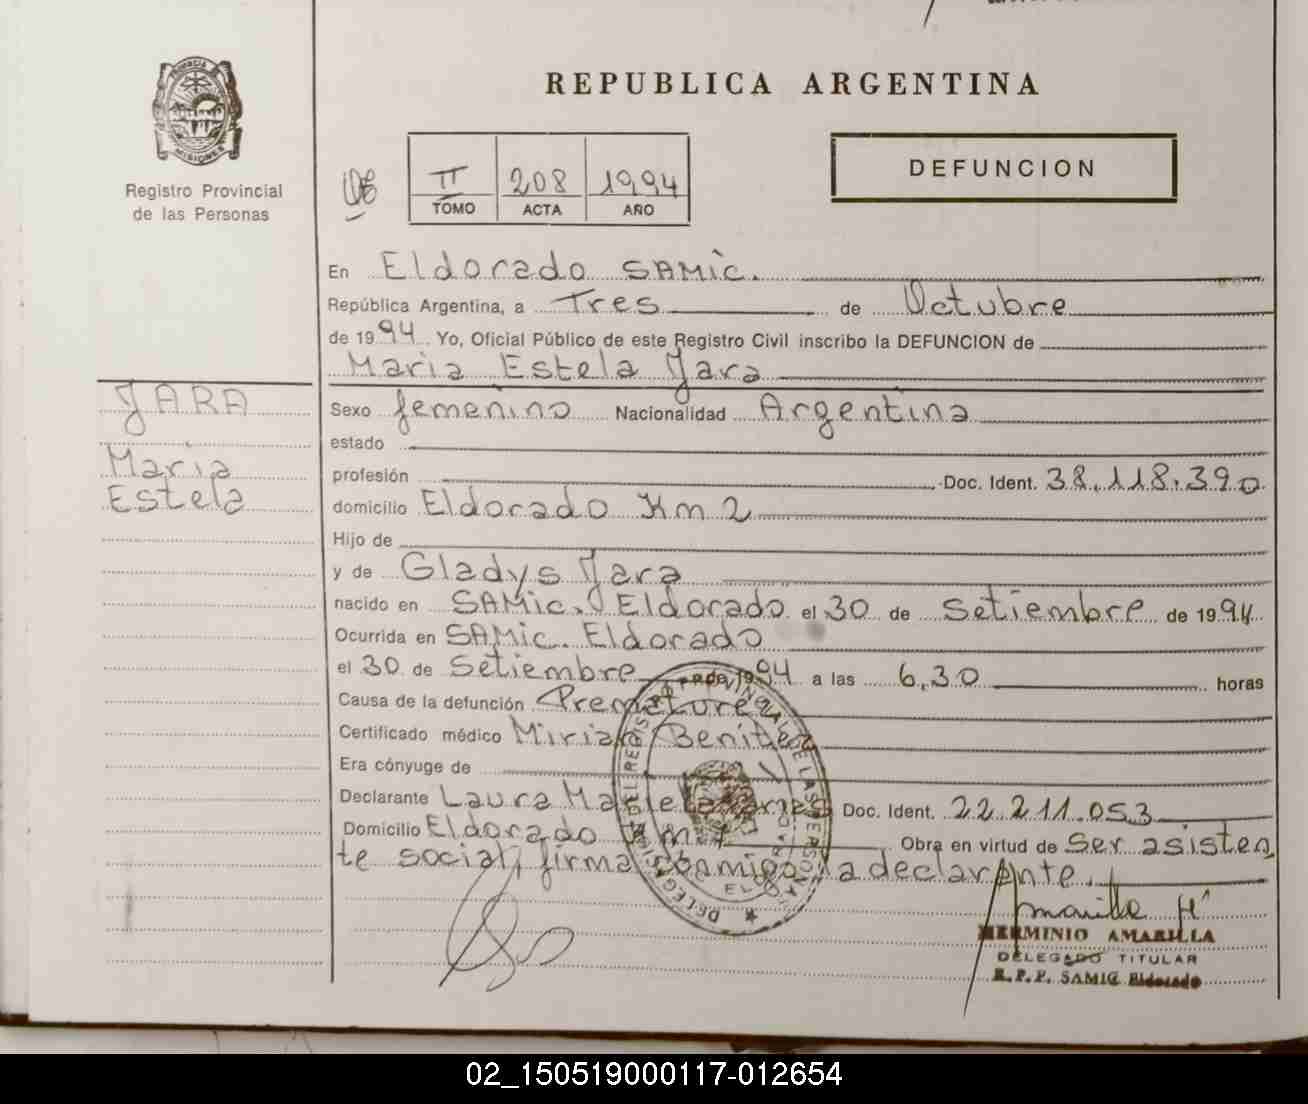 REPUBLICA ARGENTINA
PROVINCIA DE MISIONES
Registro Provincial
de las Personas
II 208 1994
TOMO ACTA AÑO
DEFUNCION
En Eldorado SAMic.
República Argentina, a Tres de Octubre
de 1994 Yo, Oficial Público de este Registro Civil inscribo la DEFUNCION de
Maria Estela Jara
JARA
Maria
Estela
Sexo femenino Nacionalidad Argentina
estado
profesión Doc. Ident. 38.118.390
domicilio Eldorado Km 2
Hijo de
y de Gladys Jara
nacido en SAMic. Eldorado el 30 de Setiembre de 1994
Ocurrida en SAMic. Eldorado
el 30 de Setiembre de 1994 a las 6,30 horas
Causa de la defunción Prematurez
Certificado médico Miriam Benitez
Era cónyuge de
Declarante Laura Doc. Ident. 22.211.053
Domicilio Eldorado Obra en virtud de Ser asisten
te social, firma conmigo la declarante.
Amarilla H
HERMINIO AMARILLA
DELEGADO TITULAR
R.P.P. SAMIC Eldorado
02_150519000117-012654